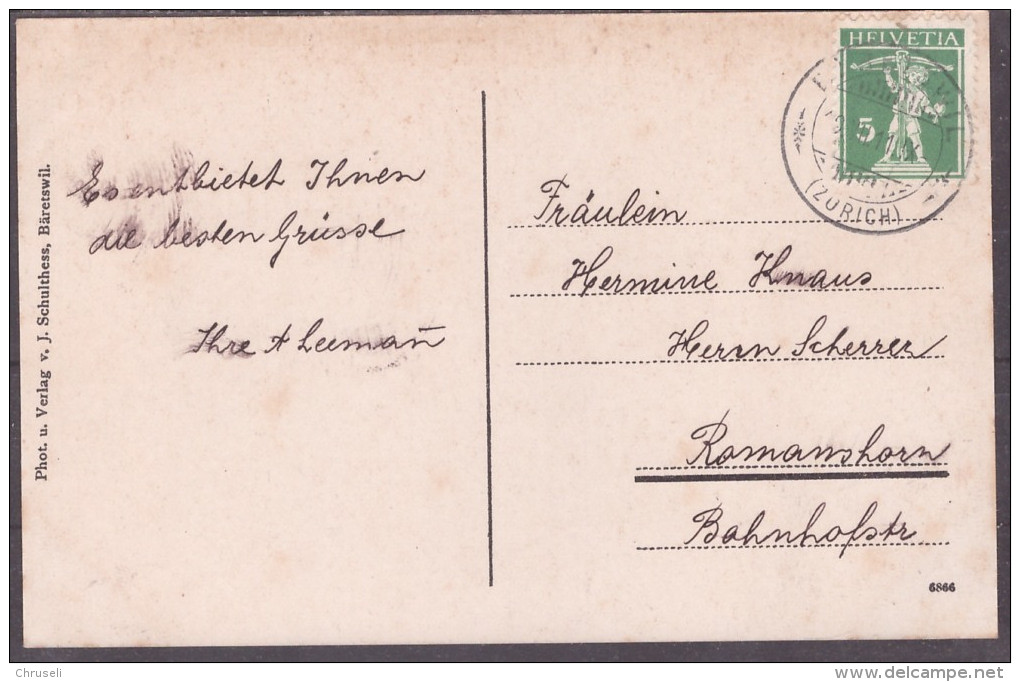 Phot. u. Verlag v. J. Schulthess, Bäretswil.
Es entbietet Ihnen
die besten Grüsse
Ihre A Leeman̄
HELVETIA
5
(ZÜRICH)
Fräulein
Hermine Knaus
Herrn Scherrer
Romanshorn
Bahnhofstr
6866
Chruseli
delcampe.net